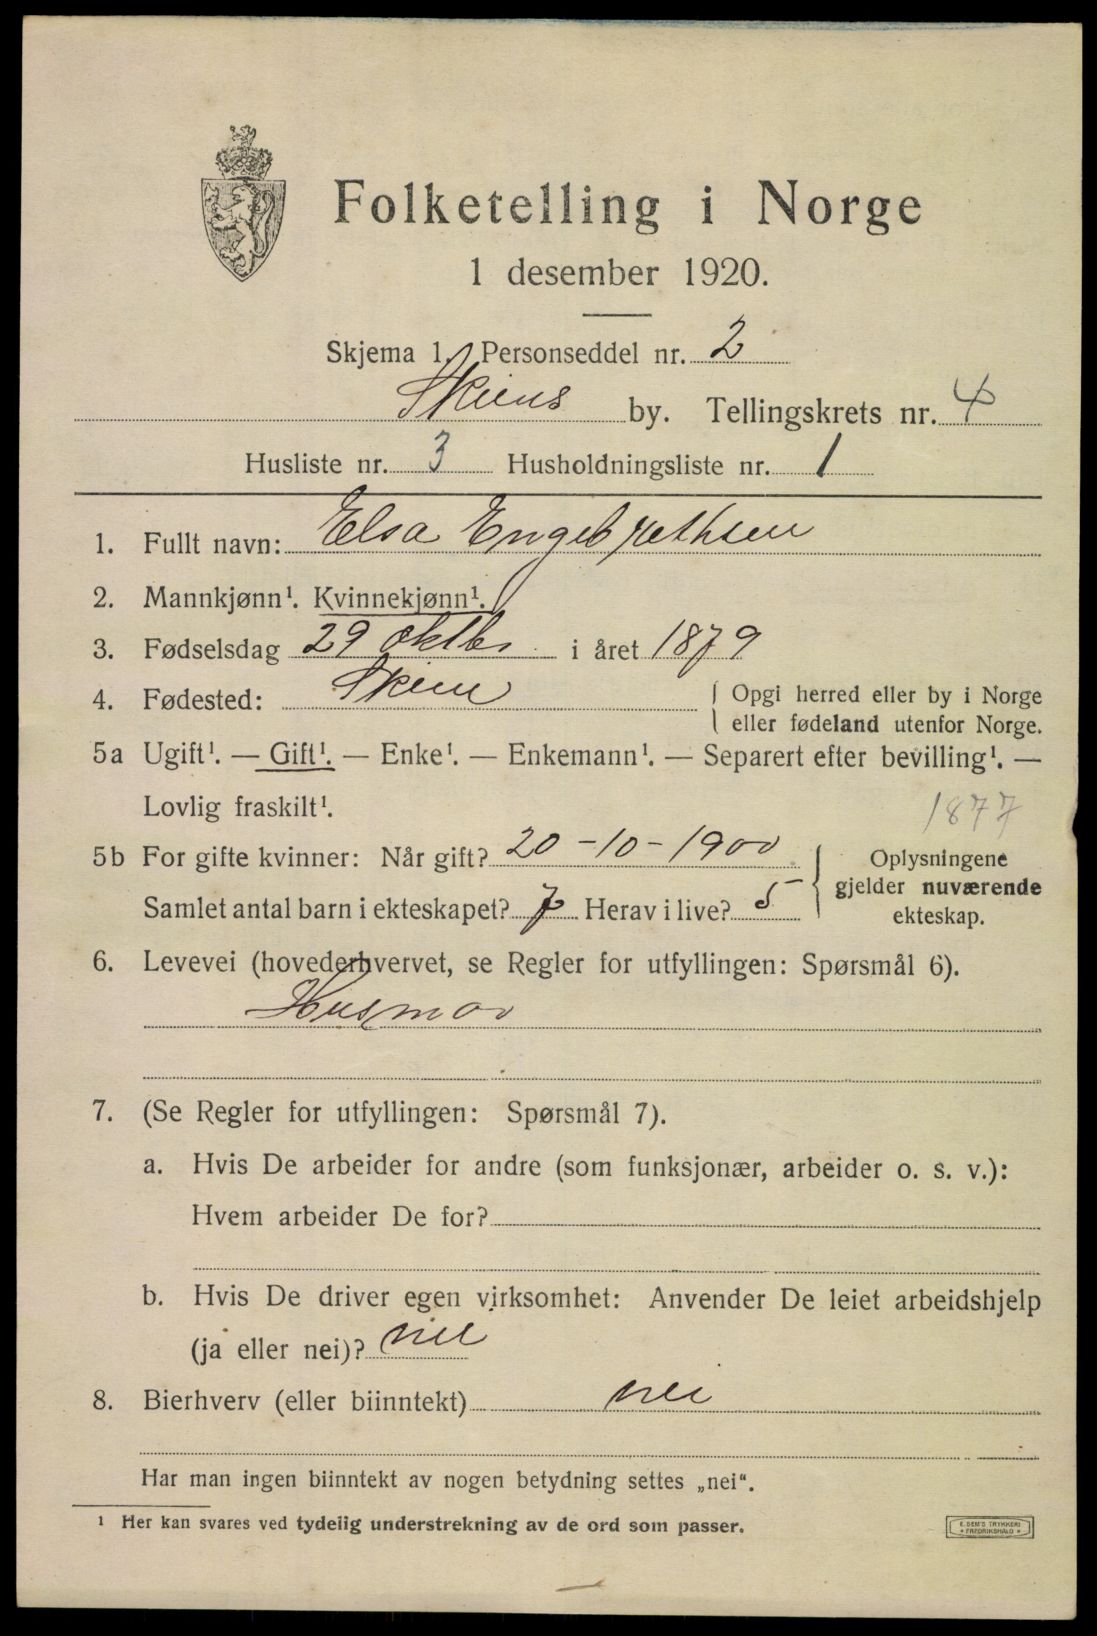 Folketelling i Norge
1 desember 1920.
Skjema 1. Personseddel nr. 2
Skiens by. Tellingskrets nr. 4
Husliste nr. 3 Husholdningsliste nr. 1
1. Fullt navn: Elsa Engebrethsen
2. Mannkjønn¹. Kvinnekjønn¹.
3. Fødselsdag 29 oktbr i året 1879
4. Fødested: Skien { Opgi herred eller by i Norge
eller fødeland utenfor Norge.
5a Ugift¹. — Gift¹. — Enke¹. — Enkemann¹. — Separert efter bevilling¹. —
Lovlig fraskilt¹. 1877
5b For gifte kvinner: Når gift? 20-10-1900 } Oplysningene
gjelder nuværende
Samlet antal barn i ekteskapet? 7 Herav i live? 5 ekteskap.
6. Levevei (hovederhvervet, se Regler for utfyllingen: Spørsmål 6).
Husmor
7. (Se Regler for utfyllingen: Spørsmål 7).
a. Hvis De arbeider for andre (som funksjonær, arbeider o. s. v.):
Hvem arbeider De for?
b. Hvis De driver egen virksomhet: Anvender De leiet arbeidshjelp
(ja eller nei)? nei
8. Bierhverv (eller biinntekt) nei
Har man ingen biinntekt av nogen betydning settes „nei“.
¹ Her kan svares ved tydelig understrekning av de ord som passer.
E. SEM'S TRYKKERI
* FREDRIKSHALD *